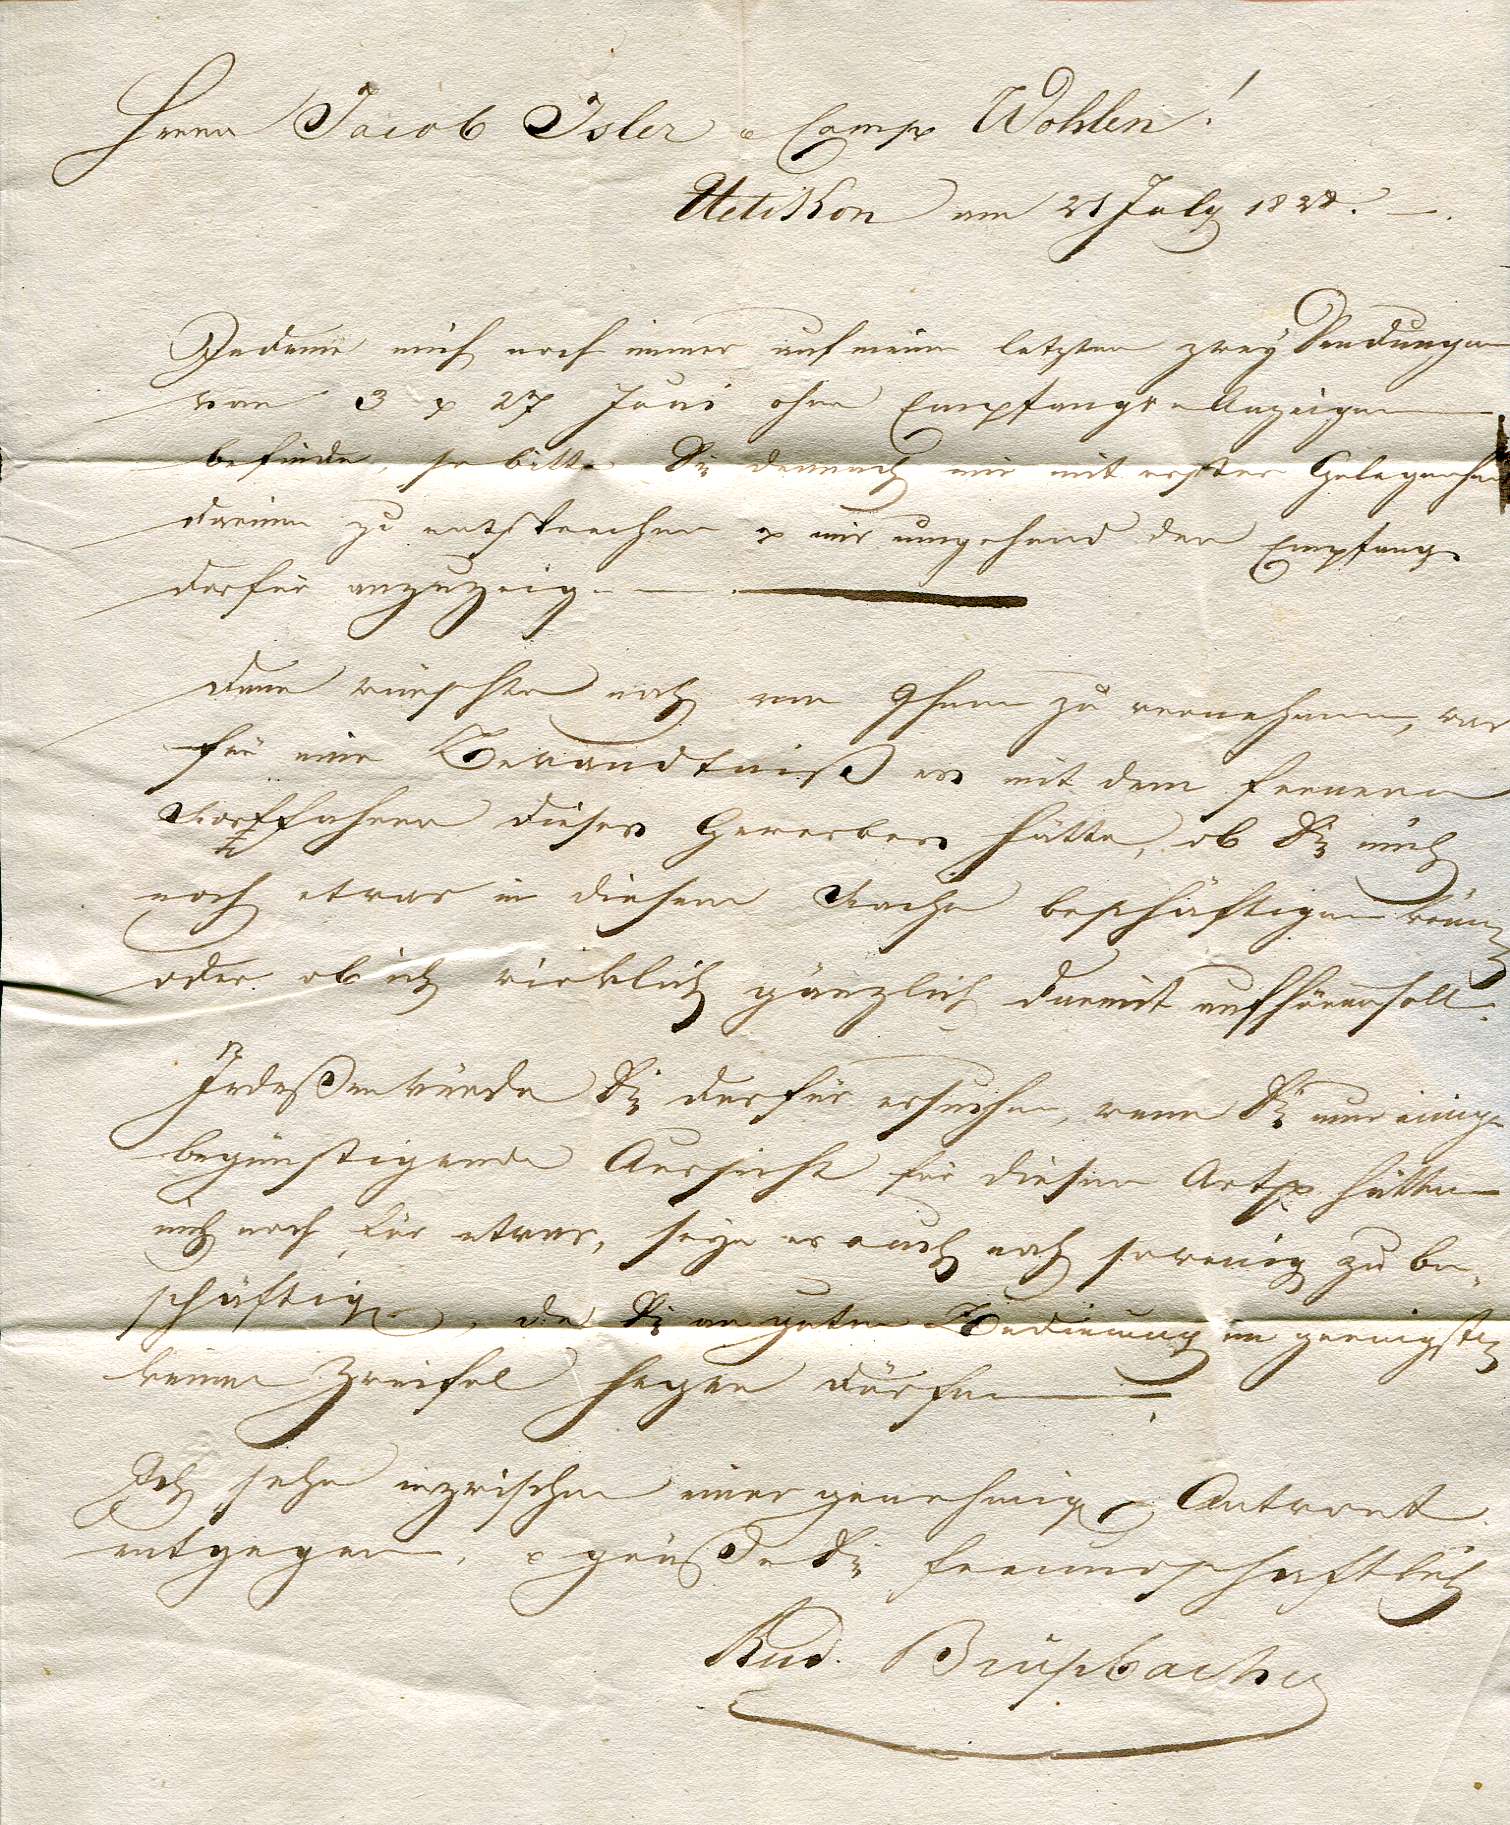 Herren Jacob Isler & Comp Wohlen!
Uetikon am 21 July 1828.
Indeme mich noch immer auf meine letzten zwey Sendungen
von 3 & 27 Juni ohne Empfangs Anzeigen
befinde, so bitte Sie demnach mir mit erster Gelegenheit
zu entsprechen & mir umgehend den Empfang
darfür anzuzeig.
Dann wünschte noch von Ihnen zu vernehmen, was
für eine Bewandtniß es mit dem fernern
Fortfahren dieses Gewerbes hätte, ob Sie mich
noch etwas in diesem Fache beschäftigen könn
oder ob ich wirklich gänzlich darmit aufhören soll.
Indeßen würde Sie darfür ersuchen, wenn Sie nur einige
begünstigende Aussicht für diesen hätten
mich noch für etwas, seye es auch noch so wenig zu be-
schäftig, da Sie an guter Bedienung im geringsten
keinen Zweifel hegen dürfen
Ich sehe inzwischen einer genehmig Antwort
entgegen, & grüße Sie freundschaftlich
Rud. Brupbacher